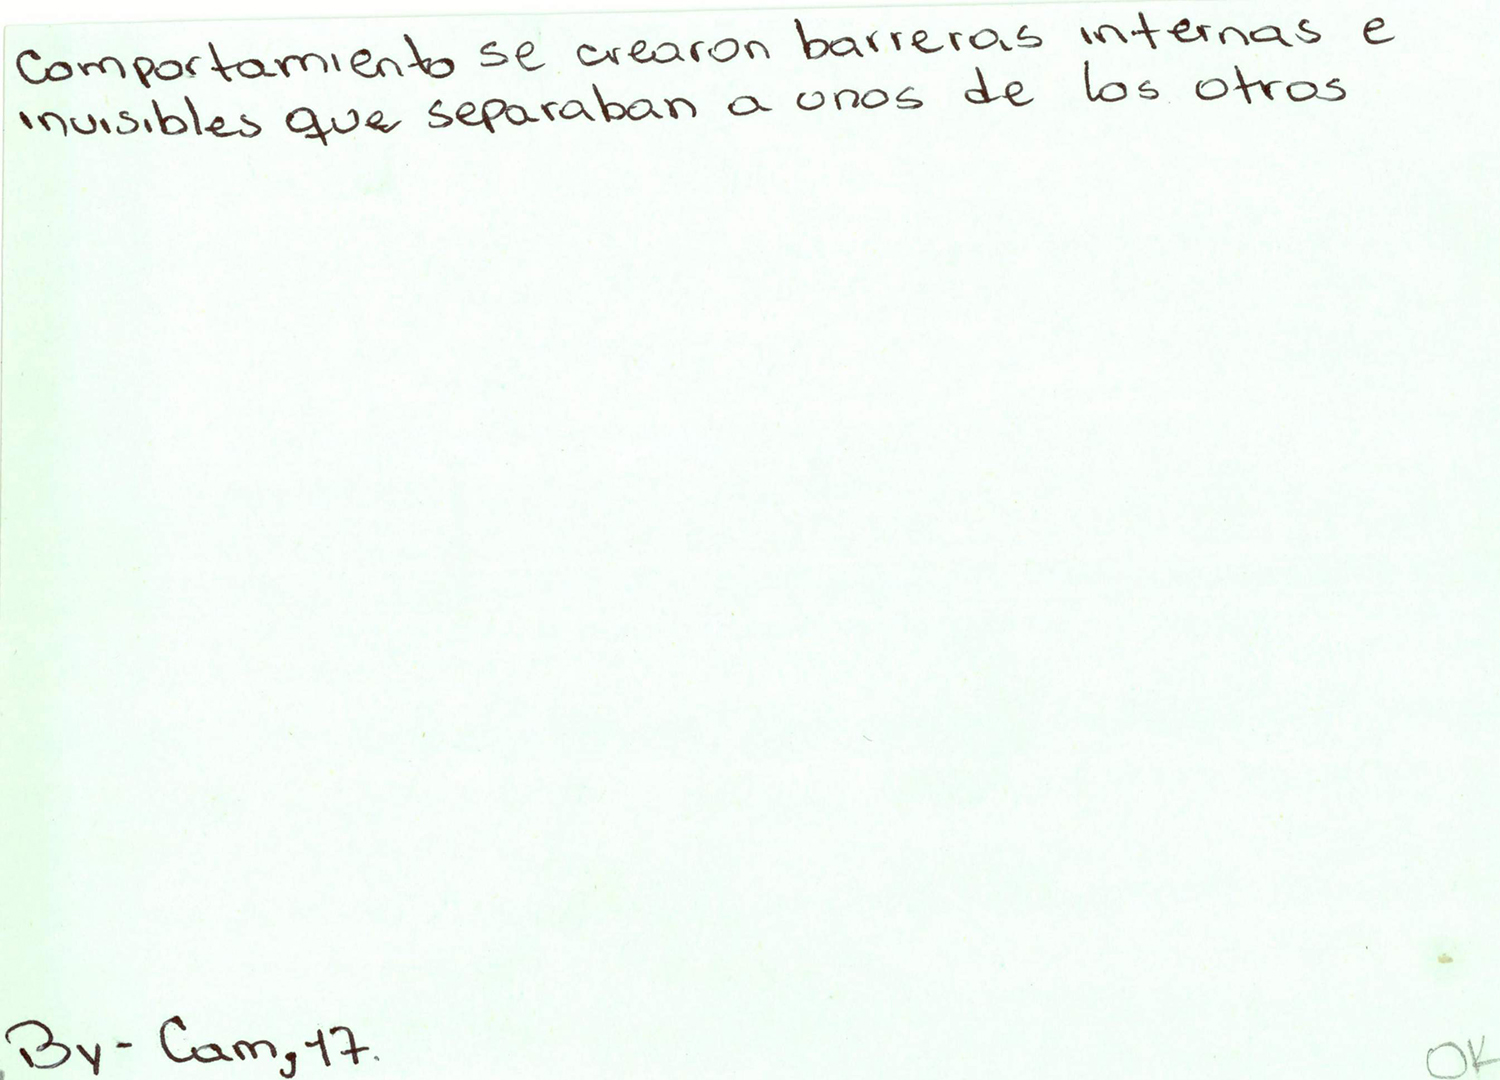 Comportamiento se crearon barreras internas e
invisibles que separaban a unos de los otros
By - Cam, 17.
OK